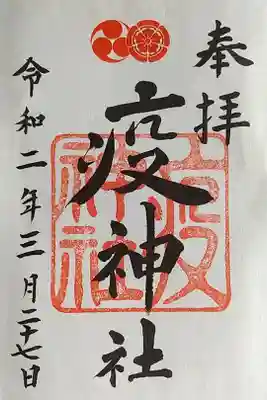 奉拝
疫神社
令和二年三月二十七日